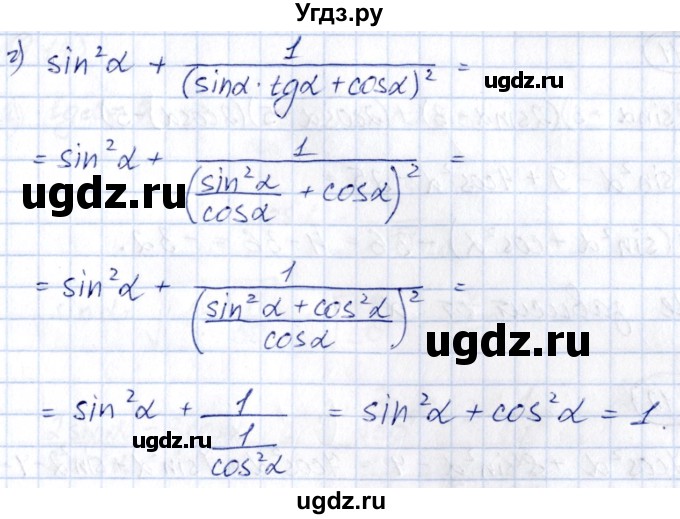 Угдз.ру
г) sin²α + 1/(sinα · tgα + cosα)² =
= sin²α + 1/(sin²α/cosα + cosα)² =
ugdz.ru
ugdz.ru
= sin²α + 1/((sin²α + cos²α)/cosα)² =
ugdz.ru
= sin²α + 1/(1/cos²α) = sin²α + cos²α = 1.
ugdz.ru
ugdz.ru